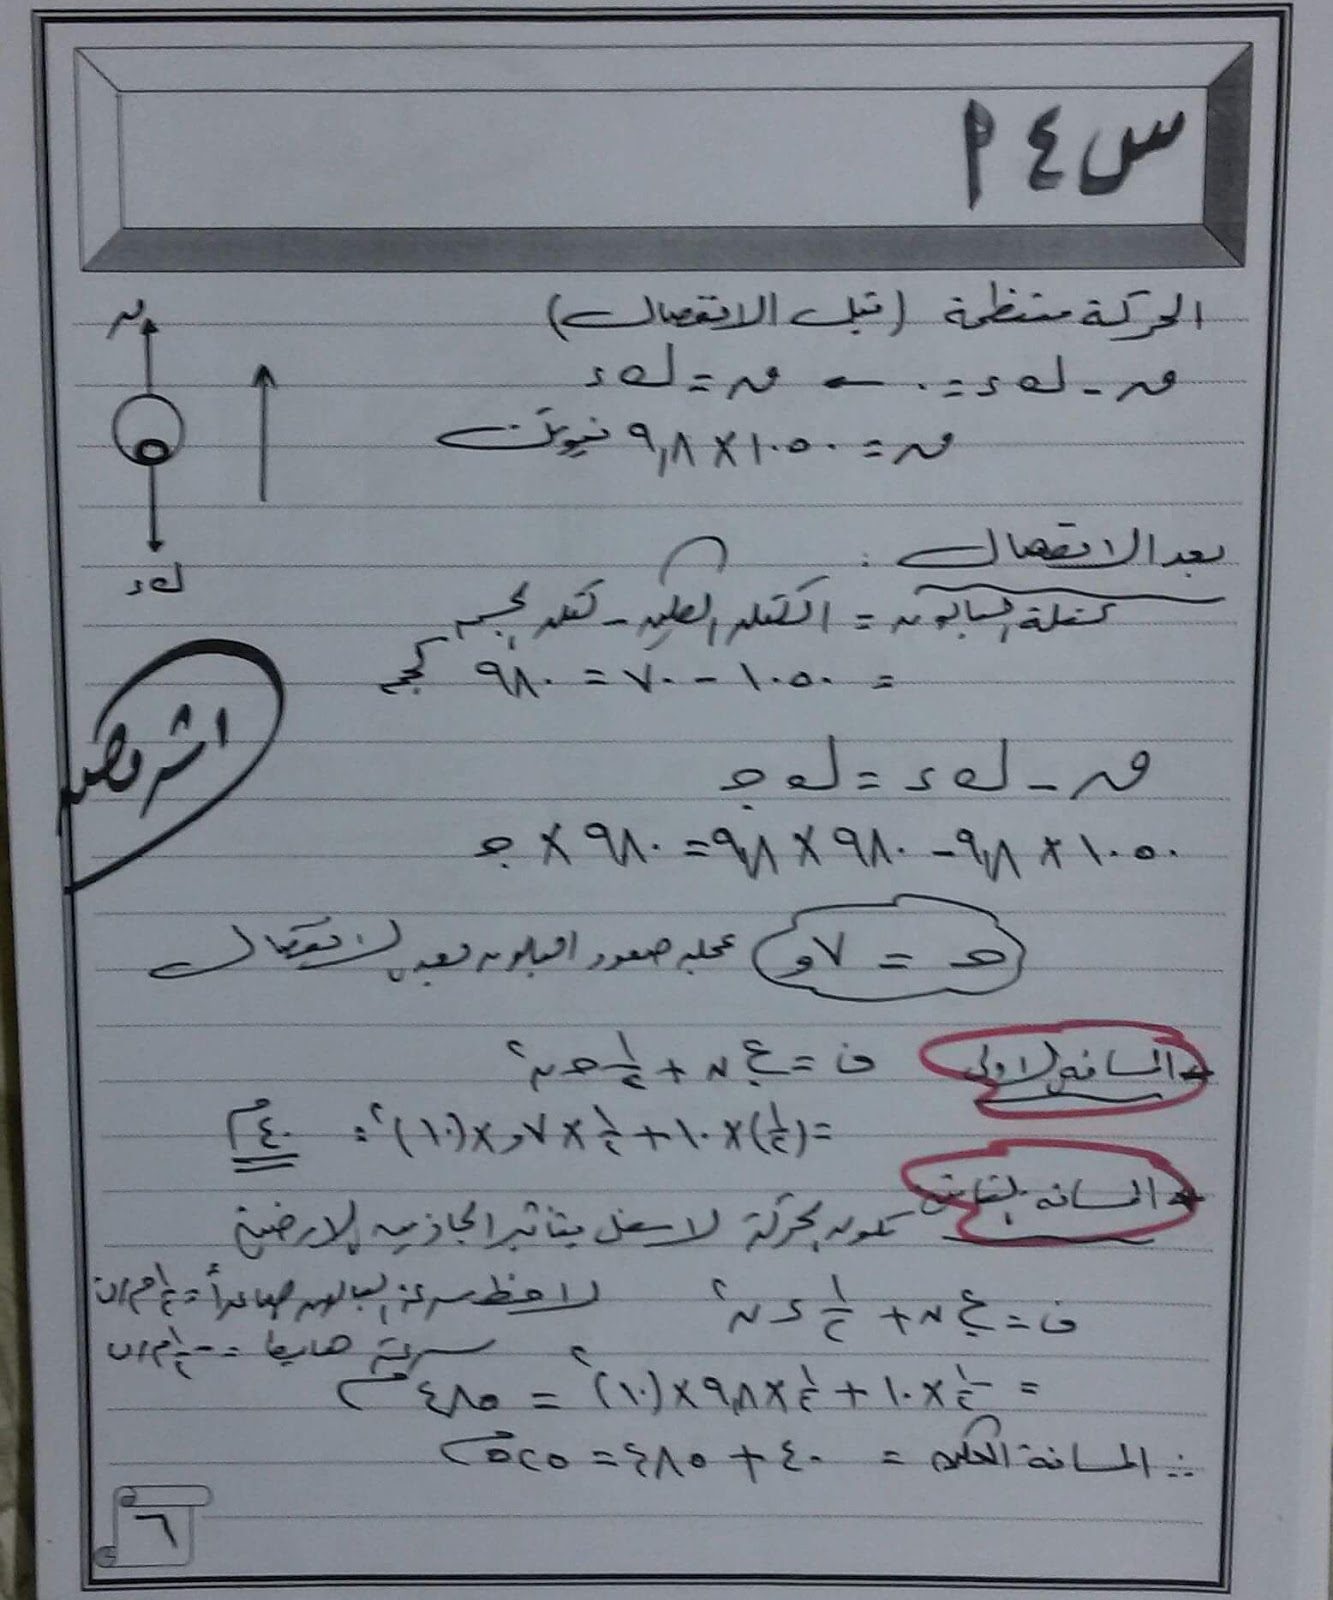 س٤ ١٢
الحركة منتظمة (قبل الانفصال)
م
م - ك د = ٠ ← م = ك د
م = ١٠٥٠ × ٩,٨ نيوتن
ك د
بعد الانفصال :
كتلة البالون = الكتلة الكلية - كتلة الجسم
= ١٠٥٠ - ٧٠ = ٩٨٠ كجم
م - ك د = ك جـ
١٠٥٠ × ٩,٨ - ٩٨٠ × ٩,٨ = ٩٨٠ × جـ
جـ = ٧و عجلة صعود البالون بعد الانفصال
المسافة الاولى ف = ع ن + ١/٢ جـ ن٢
= (١/٢) × ١٠ + ١/٢ × ٧و × (١٠)٢ = ٤٠ م
المسافة الثانية تكون الحركة لاسفل بتأثير الجاذبية الارضية
ف = ع ن + ١/٢ د ن٢ لاحظ سرعة البالون صاعداً = ١/٢ م/ث
سرعة هابطا = -١/٢ م/ث
= -١/٢ × ١٠ + ١/٢ × ٩,٨ × (١٠)٢ = ٤٨٥ م
∴ المسافة الكلية = ٤٠ + ٤٨٥ = ٥٢٥ م
٦